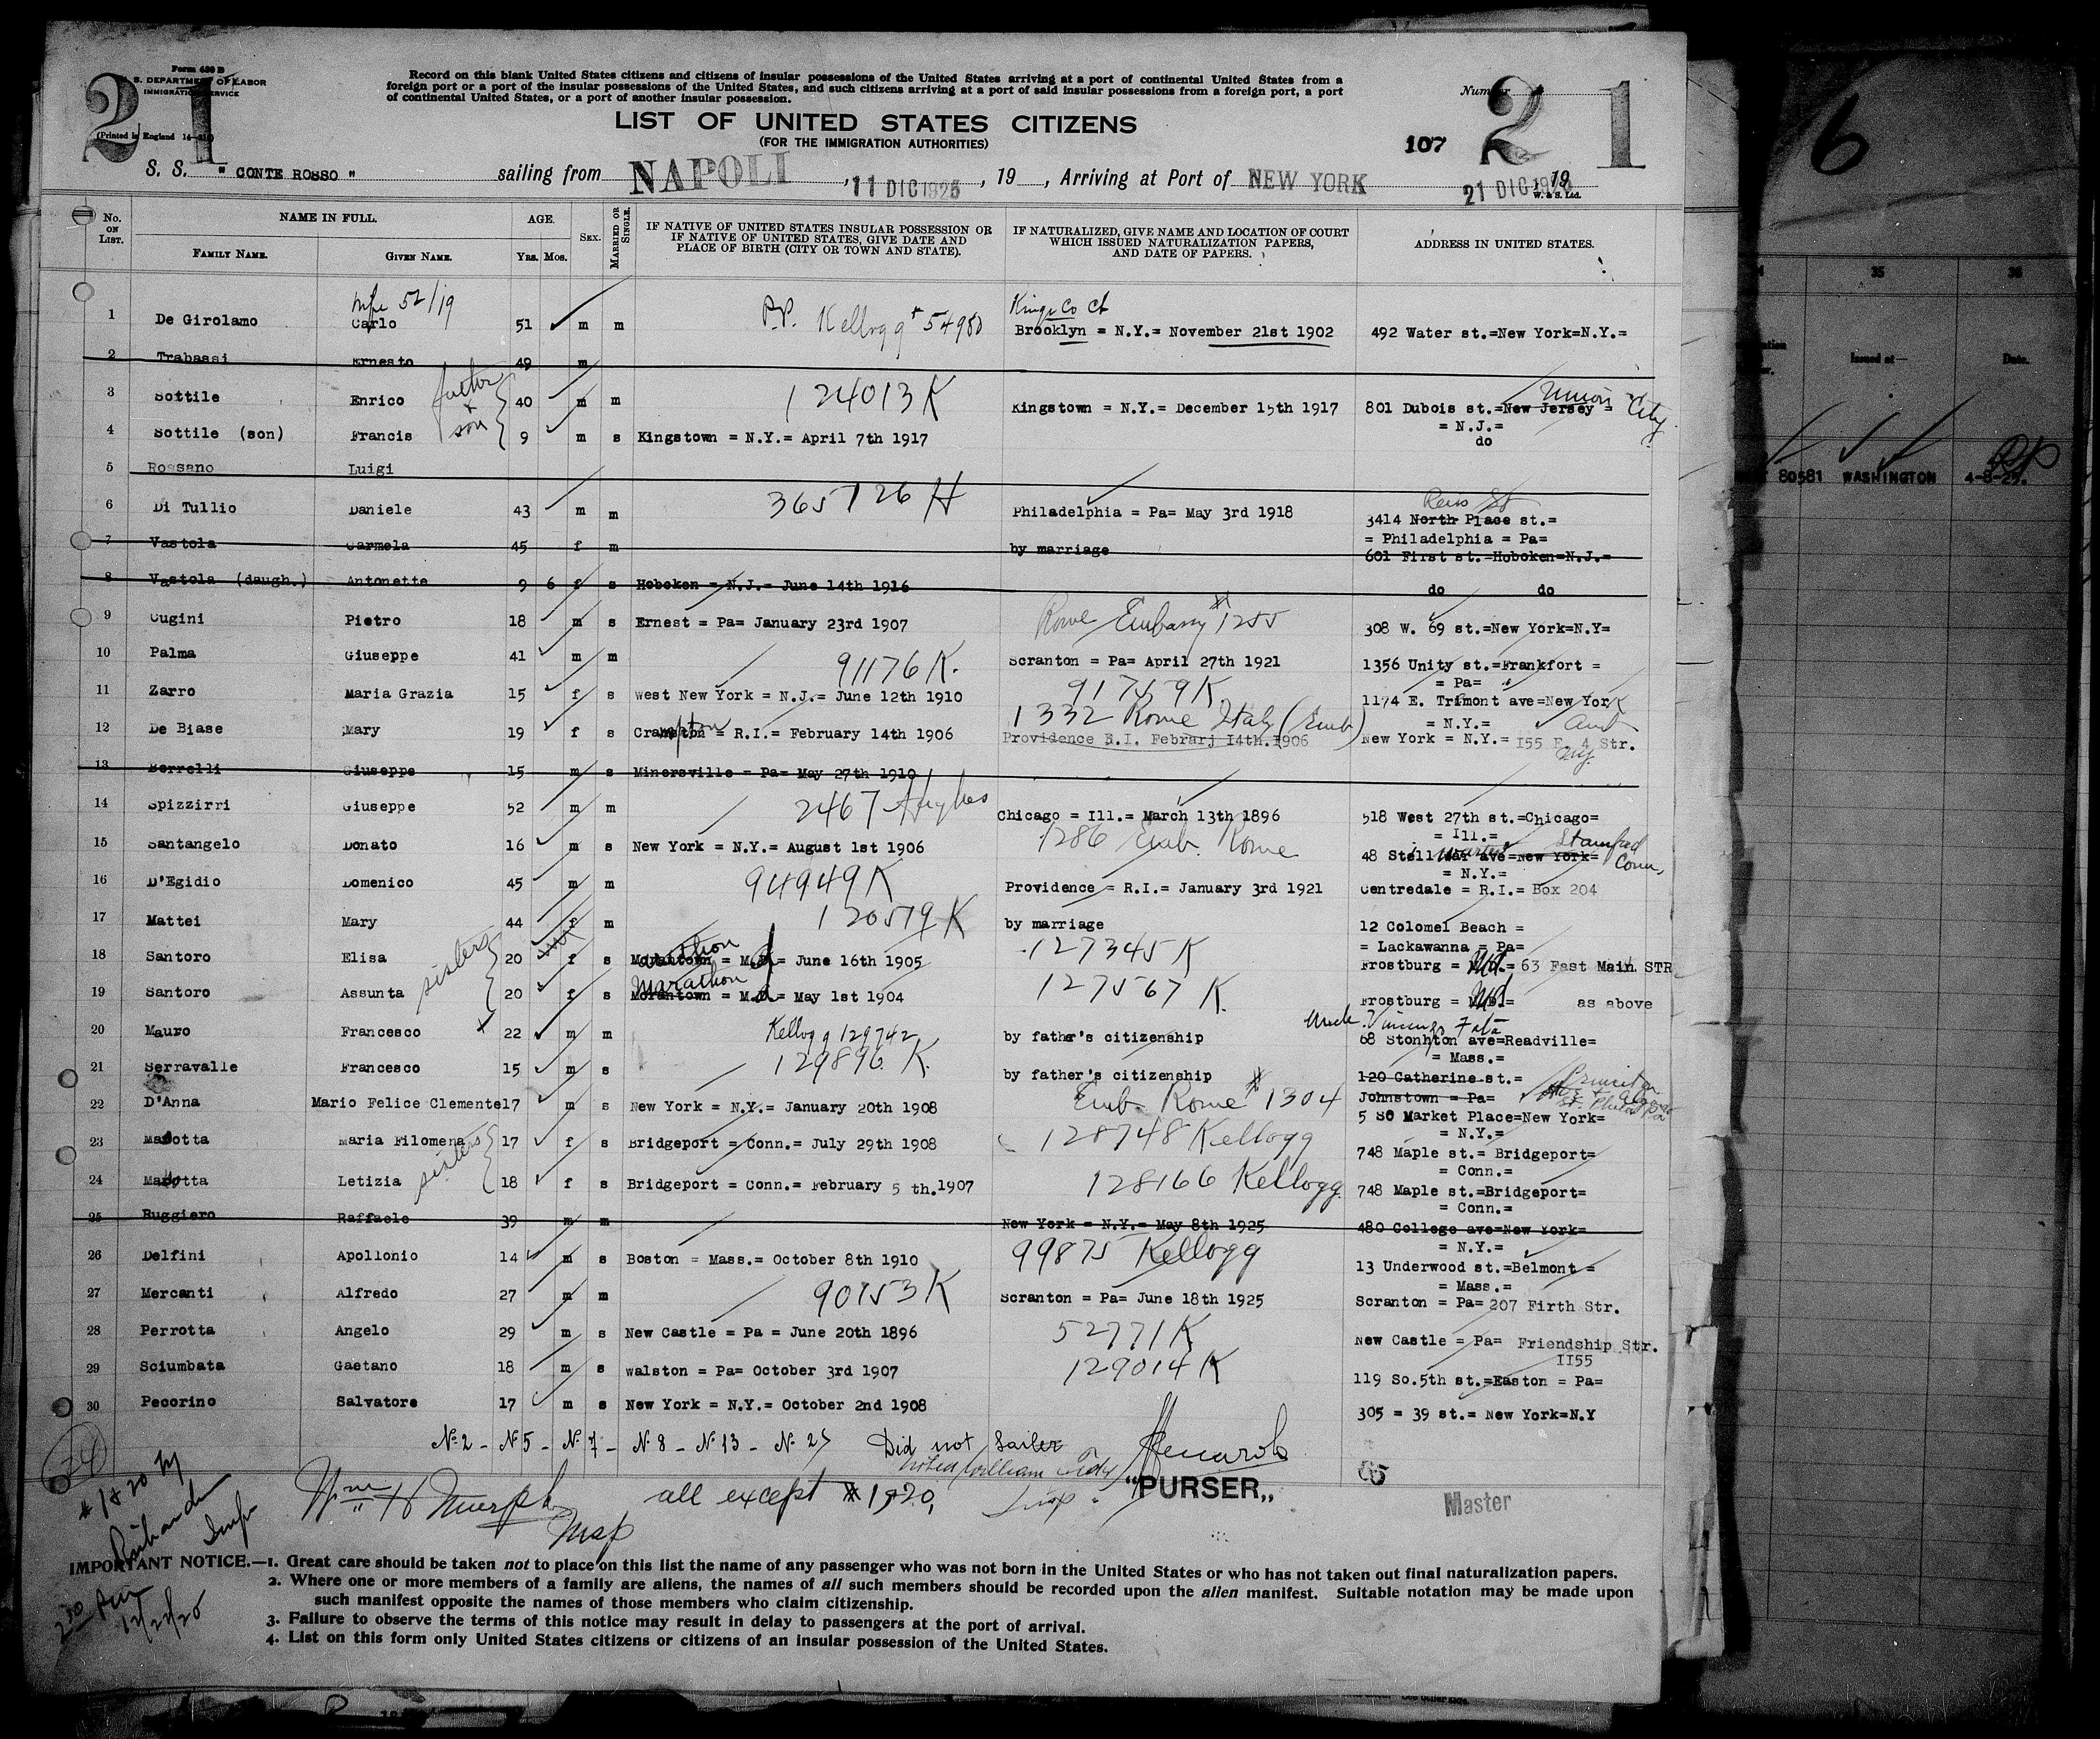 Form 630 B
U. S. DEPARTMENT OF LABOR
IMMIGRATION SERVICE
(Printed in England
21
Record on this blank United States citizens and citizens of insular possessions of the United States arriving at a port of continental United States from a
foreign port or a port of the insular possessions of the United States, and such citizens arriving at a port of said insular possessions from a foreign port, a port
of continental United States, or a port of another insular possession.
Number
LIST OF UNITED STATES CITIZENS
(FOR THE IMMIGRATION AUTHORITIES)
107
21
6
S. S. " CONTE ROSSO " sailing from NAPOLI, 11 DIC 1925, 19 , Arriving at Port of NEW YORK 21 DIC 19
W. & S. Ltd.
No. ON LIST. NAME IN FULL. AGE. SEX. MARRIED OR SINGLE. IF NATIVE OF UNITED STATES INSULAR POSSESSION OR IF NATIVE OF UNITED STATES, GIVE DATE AND PLACE OF BIRTH (CITY OR TOWN AND STATE). IF NATURALIZED, GIVE NAME AND LOCATION OF COURT WHICH ISSUED NATURALIZATION PAPERS, AND DATE OF PAPERS. ADDRESS IN UNITED STATES.
FAMILY NAME. GIVEN NAME. YRS. MOS.
35 36
Issued at— Date.
52/19 P.P. Kellogg # 54980 Kings Co Ct
1 De Girolamo Carlo 51 m m Brooklyn = N.Y.= November 21st 1902 492 Water st.=New York=N.Y.=
2 Trabassi Ernesto 49 m
3 Sottile Enrico 40 m m 124013 K Kingstown = N.Y.= December 15th 1917 801 Dubois st.=New Jersey = Union City
= N.J.=
father + son
4 Sottile (son) Francis 9 m s Kingstown = N.Y.= April 7th 1917 do
5 Rossano Luigi
80581 WASHINGTON 4-8-25.
6 Di Tullio Daniele 43 m m 365126 H Philadelphia = Pa= May 3rd 1918 3414 North Place st.=
= Philadelphia = Pa=
7 Vastola Carmela 45 f m by marriage 601 First st.=Hoboken=N.J.=
8 Vastola (daugh.) Antonette 9 6 f s Hoboken = N.J.= June 14th 1916 do do
9 Cugini Pietro 18 m s Ernest = Pa= January 23rd 1907 Rome Embassy # 1255 308 W. 69 st.=New York=N.Y=
10 Palma Giuseppe 41 m m 91176 K. Scranton = Pa= April 27th 1921 1356 Unity st.=Frankfort =
= Pa=
11 Zarro Maria Grazia 15 f s West New York = N.J.= June 12th 1910 91759 K 1174 E. Trimont ave=New York
= N.Y.=
12 De Biase Mary 19 f s Cranston = R.I.= February 14th 1906 1332 Rome Italy (Emb) New York = N.Y.= I55 E. 4 Str.
Providence R.I. Febrarj I4th.1906
13 Borrelli Giuseppe 15 m s Minersville = Pa= May 27th 1910
14 Spizzirri Giuseppe 52 m m 2467 Hughes Chicago = Ill.= March 13th 1896 518 West 27th st.=Chicago=
= Ill.=
15 Santangelo Donato 16 m s New York = N.Y.= August 1st 1906 1286 Emb. Rome 48 ave=New York= Stamford Conn.
= N.Y.=
16 D'Egidio Domenico 45 m m 94949 K Providence = R.I.= January 3rd 1921 Centredale = R.I.= Box 204
17 Mattei Mary 44 f m 120519 K by marriage 12 Colomel Beach =
= Lackawanna = Pa=
sisters
18 Santoro Elisa 20 f s Morantown = M.d.= June 16th 1905 127345 K Frostburg = Md.= 63 East Main STR
19 Santoro Assunta 20 f s Morantown Marathon = M.d= May 1st 1904 127567 K. Frostburg = Md.= as above
20 Mauro Francesco 22 m m Kellogg 129742 by father's citizenship Uncle
68 Stonhton ave=Readville=
= Mass.=
21 Serravalle Francesco 15 m s 129896 K. by father's citizenship 120 Catherine st.=
Johnstown = Pa=
22 D'Anna Mario Felice Clemente 17 m s New York = N.Y.= January 20th 1908 Emb. Rome # 1304 5 80 Market Place=New York=
= N.Y.=
23 Marotta Maria Filomena 17 f s Bridgeport = Conn.= July 29th 1908 128748 Kellogg 748 Maple st.= Bridgeport=
= Conn.=
sisters
24 Marotta Letizia 18 f s Bridgeport = Conn.= February 5 th.1907 128166 Kellogg 748 Maple st.=Bridgeport=
= Conn.=
25 Ruggiero Raffaele 39 m m New York = N.Y.= May 8th 1925 480 College ave=New York=
= N.Y.=
26 Delfini Apollonio 14 m s Boston = Mass.= October 8th 1910 99875 Kellogg 13 Underwood st.=Belmont =
= Mass.=
27 Mercanti Alfredo 27 m m 90753 K Scranton = Pa= June 18th 1925 Scranton = Pa= 207 Firth Str.
28 Perrotta Angelo 29 m s New Castle = Pa = June 20th 1896 52771 K New Castle = Pa= Friendship Str.
II55
29 Sciumbata Gaetano 18 m s Walston = Pa= October 3rd 1907 129014 K 119 So.5th st.=Easton = Pa=
30 Pecorino Salvatore 17 m s New York = N.Y.= October 2nd 1908 305 = 39 st.= New York=N.Y
No 2 - No 5 - No 7 - No 8 - No 13 - No 25 Did not sailed
24
Wm H Murphy all except # 1 & 20, Insp. "PURSER„ Master
# 1 & 20 by
Insp
12/21/25
IMPORTANT NOTICE.—1. Great care should be taken not to place on this list the name of any passenger who was not born in the United States or who has not taken out final naturalization papers.
2. Where one or more members of a family are aliens, the names of all such members should be recorded upon the alien manifest. Suitable notation may be made upon
such manifest opposite the names of those members who claim citizenship.
3. Failure to observe the terms of this notice may result in delay to passengers at the port of arrival.
4. List on this form only United States citizens or citizens of an insular possession of the United States.